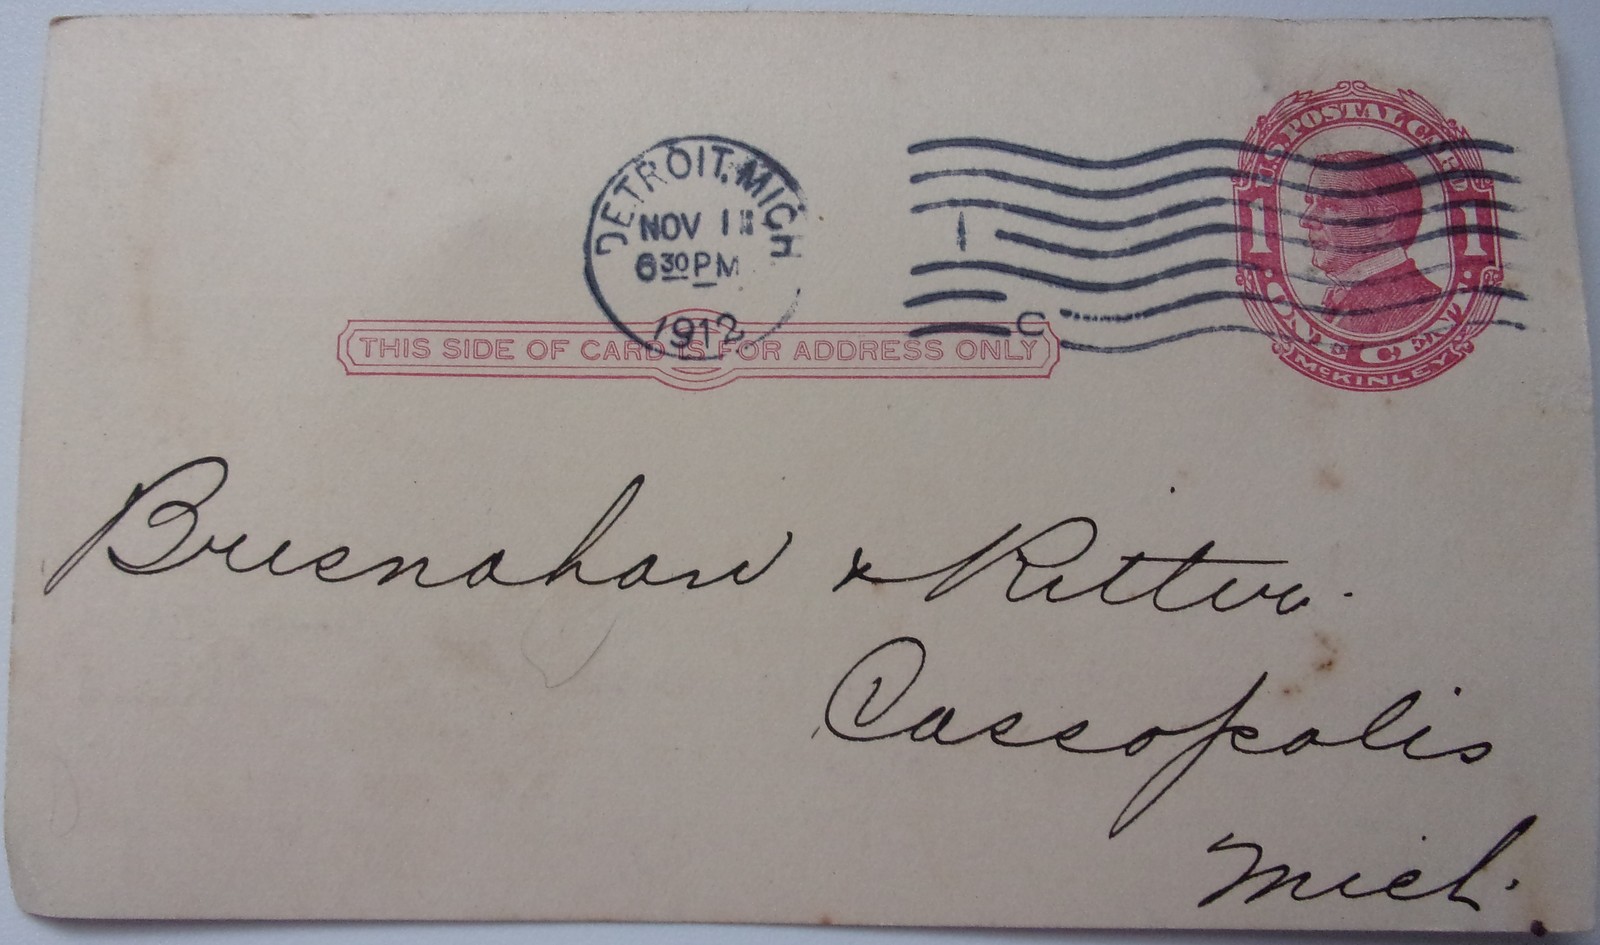 U.S. POSTAL CARD
1 1
ONE CENT
McKINLEY
DETROIT, MICH
NOV 1
6 30 PM
1912
C
THIS SIDE OF CARD IS FOR ADDRESS ONLY
Bresnahan & Ritter.
Cassopolis
Mich.